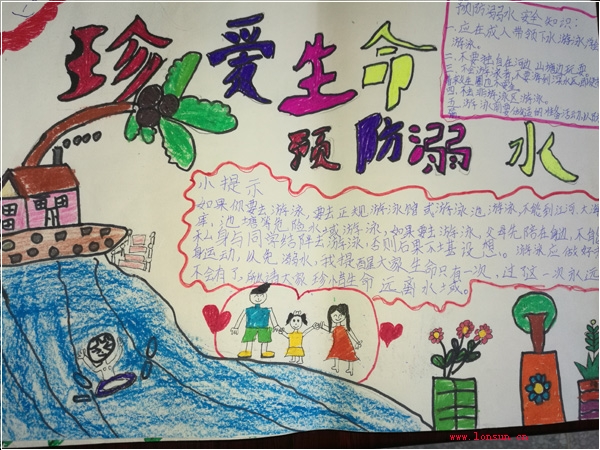 珍爱生命
预防溺水
预防溺水安全知识：
一.应在成人带领下水游泳
游泳。
二.不要独自在河边、山塘边玩耍。
三.不会游泳者,不要游到深水区
四.不去非游泳区游泳。
五.游泳前要做适当的准备活动,以防
小提示
如果你要去游泳,要去正规游泳馆或游泳池游泳,不能到江河、大海
库,池塘等危险水域游泳,如果要去游泳,父母先陪在身边,不
私身与同学结伴去游泳,否则后果不堪设想。游泳应做好
身运动,以免溺水,我提醒大家生命只有一次,过这一次永远
不会有了,所以请大家珍惜生命远离水域。
www.lonsun.cn